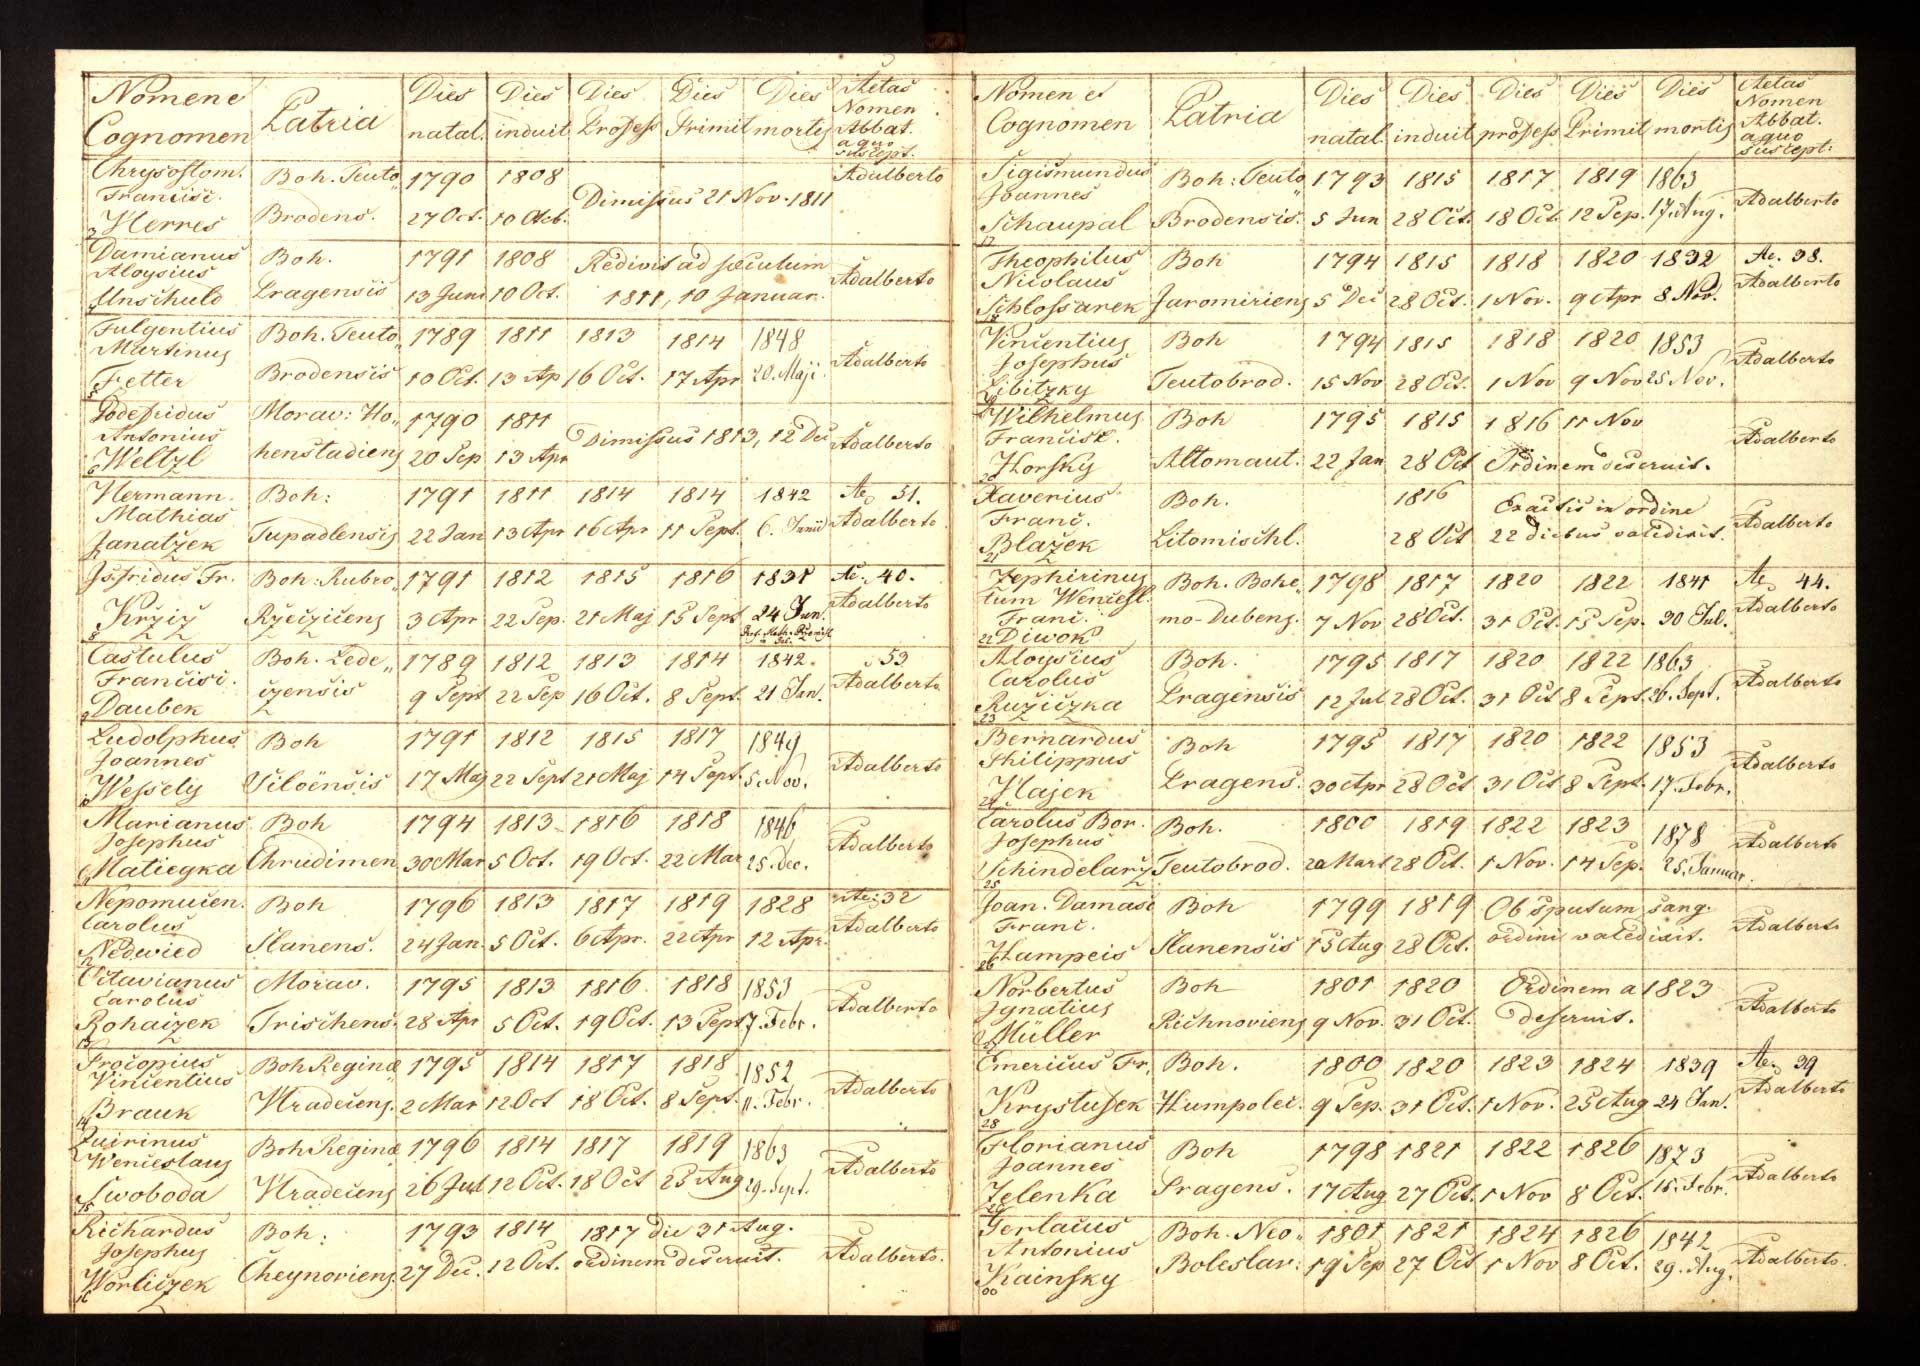 Nomen e Cognomen Patria Dies natal. Dies induit Dies Profess Dies Primit Dies mortis Aetas Nomen Abbat. a quo suscept.
Chrysostom. Boh. Teuto„ 1790 1808 Adalberto
Francisc. Dimissus 21 Nov. 1811
3 Herres Brodens. 27 Oct. 10 Octb.
Damianus Boh. 1791 1808 Redivit ad sæculum Adalberto
Aloysius
4 Unschuld Pragensis 13 Juni 10 Oct. 1811, 10 Januar.
Fulgentius Boh. Teuto„ 1789 1811 1813 1814 1848 Adalberto
Martinus
5 Fetter Brodensis 10 Oct. 13 Ap 16 Oct. 17 Apr 20. Maji
Godefridus Morav: Ho„ 1790 1811 Adalberto
Antonius Dimissus 1813, 12 Dec
6 Weltzl henstadiens 20 Sep 13 Apr
Hermann. Boh: 1791 1811 1814 1814 1842 Ae. 51.
Mathias Adalberto
7 Janatžek Tupadlensis 22 Jan 13 Apr 16 Apr 11 Sept. 6. Junii
Isfridus Fr. Boh. Rubro„ 1791 1812 1815 1816 1831 Ae. 40.
Adalberto
8 Kržiž Ržecžičens 3 Apr 22 Sep. 21 Maj 15 Sept 24 Jun.
Castulus Boh. Lede„ 1789 1812 1813 1814 1842. 53
Francisci. Adalberto
9 Daubek czensis 9 Sept 22 Sep 16 Oct. 8 Sept. 21 Jan.
Ludolphus Boh 1791 1812 1815 1817 1849 Adalberto
Joannes
10 Wessely Wiloënsis 17 Maj 22 Sept 21 Maj 14 Sept. 5. Nov.
Marianus Boh 1794 1813 1816 1818 1846 Adalberto
Josephus
11 Matiegka Chrudimen 30 Mar 5 Oct. 19 Oct. 22 Mar 25. Dec.
Nepomucen. Boh 1796 1813 1817 1819 1828 Ae: 32
Carolus Adalberto
12 Nedwied Slanens. 24 Jan. 5 Oct. 6 Apr. 22 Apr 12 Apr.
Octavianus Morav. 1795 1813 1816 1818 1853 Adalberto
Carolus
13 Rohaczek Trischens. 28 Apr 5 Oct. 19 Oct. 13 Sept 7. Febr.
Procopius Boh Reginæ„ 1795 1814 1817 1818 1852 Adalberto
Vincentius
14 Brauk Hradecens. 2 Mar 12 Oct 18 Oct. 8 Sept. 11. Febr.
Quirinus Boh Reginæ 1796 1814 1817 1819 1863 Adalberto
Wenceslaus
15 Swoboda Hradecens 26 Jul 12 Oct. 18 Oct 25 Aug 29. Sept.
Richardus Boh: 1793 1814 1817 die 31 Aug. Adalberto.
Josephus
16 Worliczek Cheynoviens 27 Dec. 12 Oct. ordinem deseruit.
Nomen et Cognomen Patria Dies natal. Dies induit Dies profess Dies Primit Dies mortis Aetas Nomen Abbat. a quo suscept:
Sigismundus Boh: Teuto„ 1793 1815 1817 1819 1863 Adalberto
Joannes
17 Schaupal Brodensis. 5 Jun 28 Oct. 18 Oct. 12 Sep. 17. Aug.
Theophilus Boh 1794 1815 1818 1820 1832 Ae. 38.
Nicolaus Adalberto
18 Schlossarek Jaromiriens 5 Dec 28 Oct. 1 Nov. 9 Apr 8 Nov.
Vincentius Boh 1794 1815 1818 1820 1853 Adalberto
Josephus
19 Sibitzky Teutobrod. 15 Nov 28 Oct. 1 Nov 9 Nov 25 Nov.
Wilhelmus Boh 1795 1815 1816 11 Nov Adalberto
Francisc.
20 Horsky Altomaut. 22 Jan 28 Oct Ordinem deseruit.
Xaverius Boh. 1816 Exactis in ordine Adalberto
Franc.
21 Blažek Litomischl. 28 Oct 22 diebus valedixit.
Zephirinus Boh. Bohe„ 1798 1817 1820 1822 1841 Ae. 44.
cum Wencesl. Adalberto
Franc. mo-Dubens. 7 Nov 28 Oct. 31 Oct. 15 Sep. 30 Jul.
22 Diwok
Aloysius Boh. 1795 1817 1820 1822 1863 Adalberto
Carolus
23 Ružiczka Pragensis 12 Jul 28 Oct. 31 Oct 8 Sept. 26. Sept.
Bernardus Boh 1795 1817 1820 1822 1853 Adalberto
Philippus
24 Hajek Pragens. 30 Apr 28 Oct 31 Oct 8 Sept. 17. Febr.
Carolus Bor. Boh. 1800 1819 1822 1823 1878 Adalberto
Josephus
25 Schindelarž Teutobrod. 20 Mart 28 Oct. 1 Nov. 14 Sep. 25. Januar.
Joan. Damasc Boh 1799 1819 Ob sputum sang. Adalberto
Franc. ordini valedixit.
26 Hampeis Slanensis 15 Aug 28 Oct.
Norbertus Boh 1801 1820 Ordinem a 1823 Adalberto
Ignatius
27 Müller Richnoviens 9 Nov. 31 Oct. deseruit.
Emericus Fr. Boh. 1800 1820 1823 1824 1839 Ae. 39
Adalberto
28 Krystufek Humpolec. 9 Sep. 31 Oct. 1 Nov. 25 Aug 24 Jan.
Florianus Boh 1798 1821 1822 1826 1873 Adalberto
Joannes
29 Zelenka Pragens. 17 Aug 27 Oct. 1 Nov 8 Oct. 15. Febr.
Gerlacus Boh. Neo„ 1801 1821 1824 1826 1842 Adalberto.
Antonius
Kainsky Boleslav: 19 Sep 27 Oct 1 Nov 8 Oct. 29. Aug.